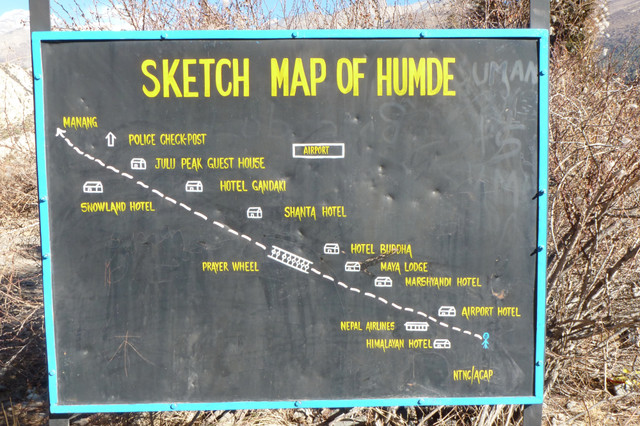 SKETCH MAP OF HUMDE
MANANG
POLICE CHECK-POST
AIRPORT
JULU PEAK GUEST HOUSE
HOTEL GANDAKI
SNOWLAND HOTEL
SHANTA HOTEL
HOTEL BUDDHA
PRAYER WHEEL
MAYA LODGE
MARSHYANDI HOTEL
AIRPORT HOTEL
NEPAL AIRLINES
HIMALAYAN HOTEL
NTNC/ACAP